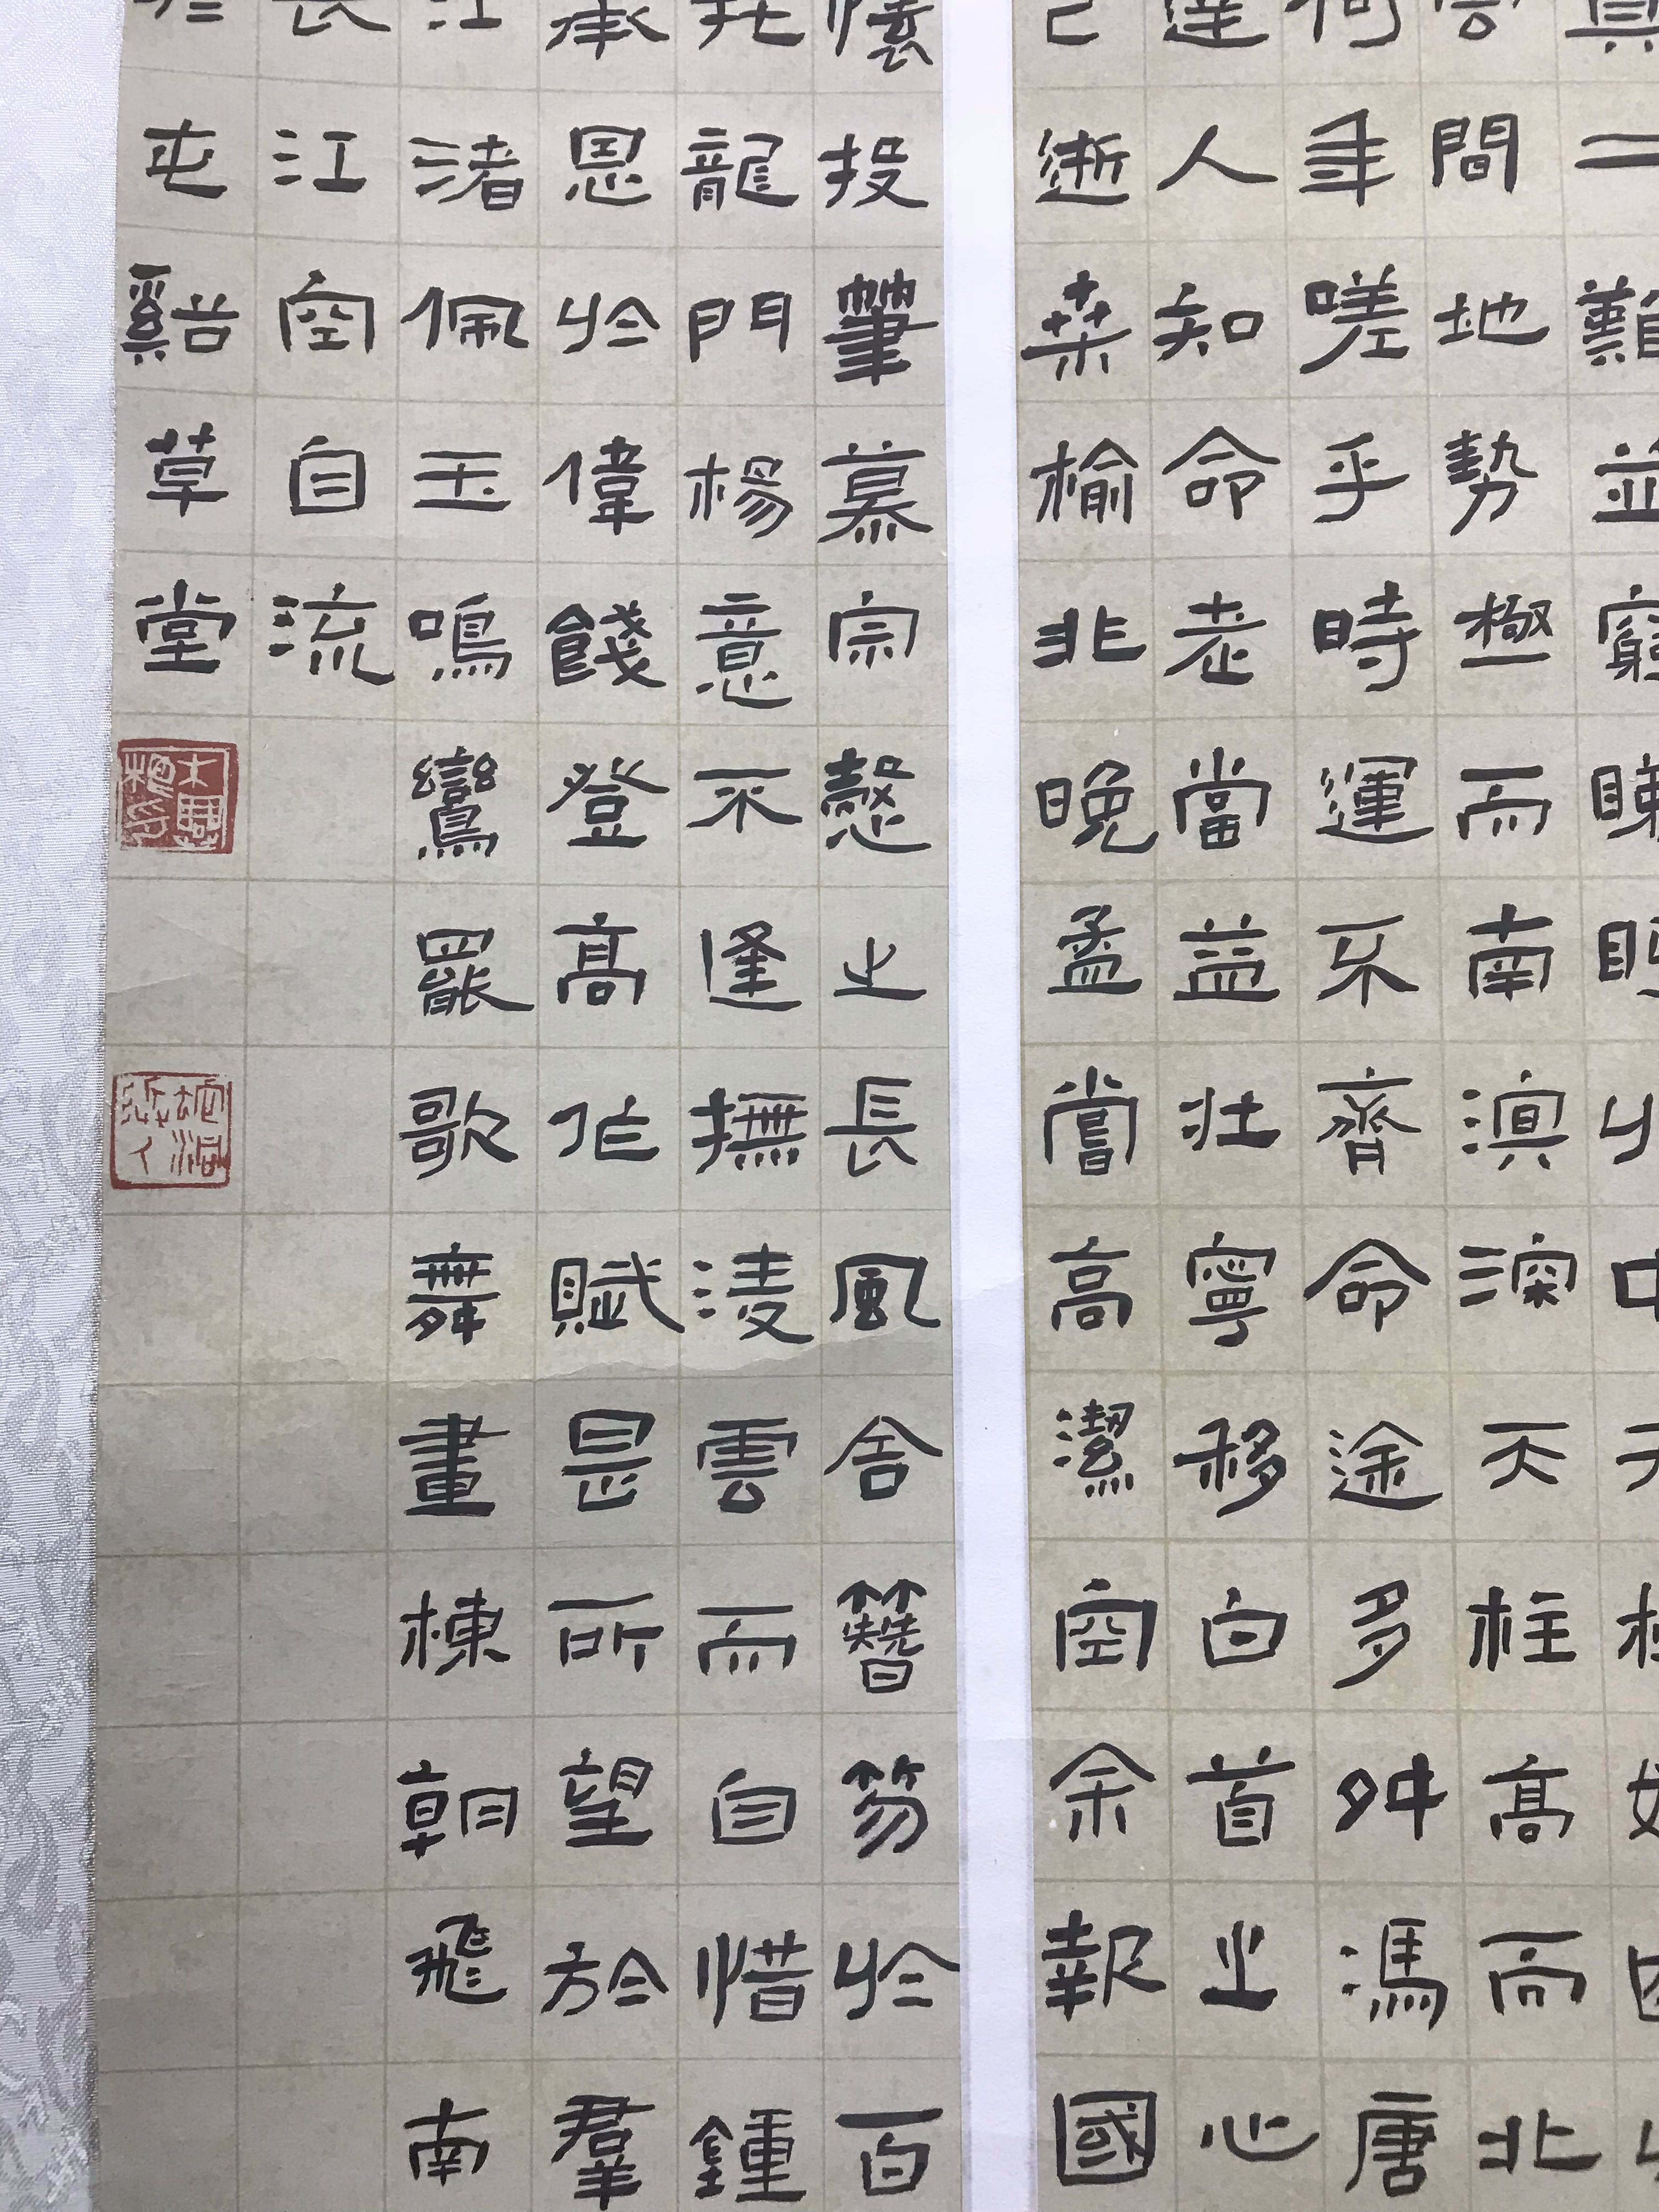 具二難並窮睇眄於中天極娛
雲間地勢極而南溟深天柱高而北
何年嗟乎時運不齊命途多舛馮唐
達人知命老當益壯寧移白首之心
已逝桑榆非晚孟嘗高潔空余報國
懷投筆慕宗愨之長風舍簪笏於百
托龍門楊意不逢撫淩雲而自惜鍾
承恩於偉餞登高作賦是所望於羣
江渚佩玉鳴鸞罷歌舞畫棟朝飛南
長江空自流
於屯谿草堂